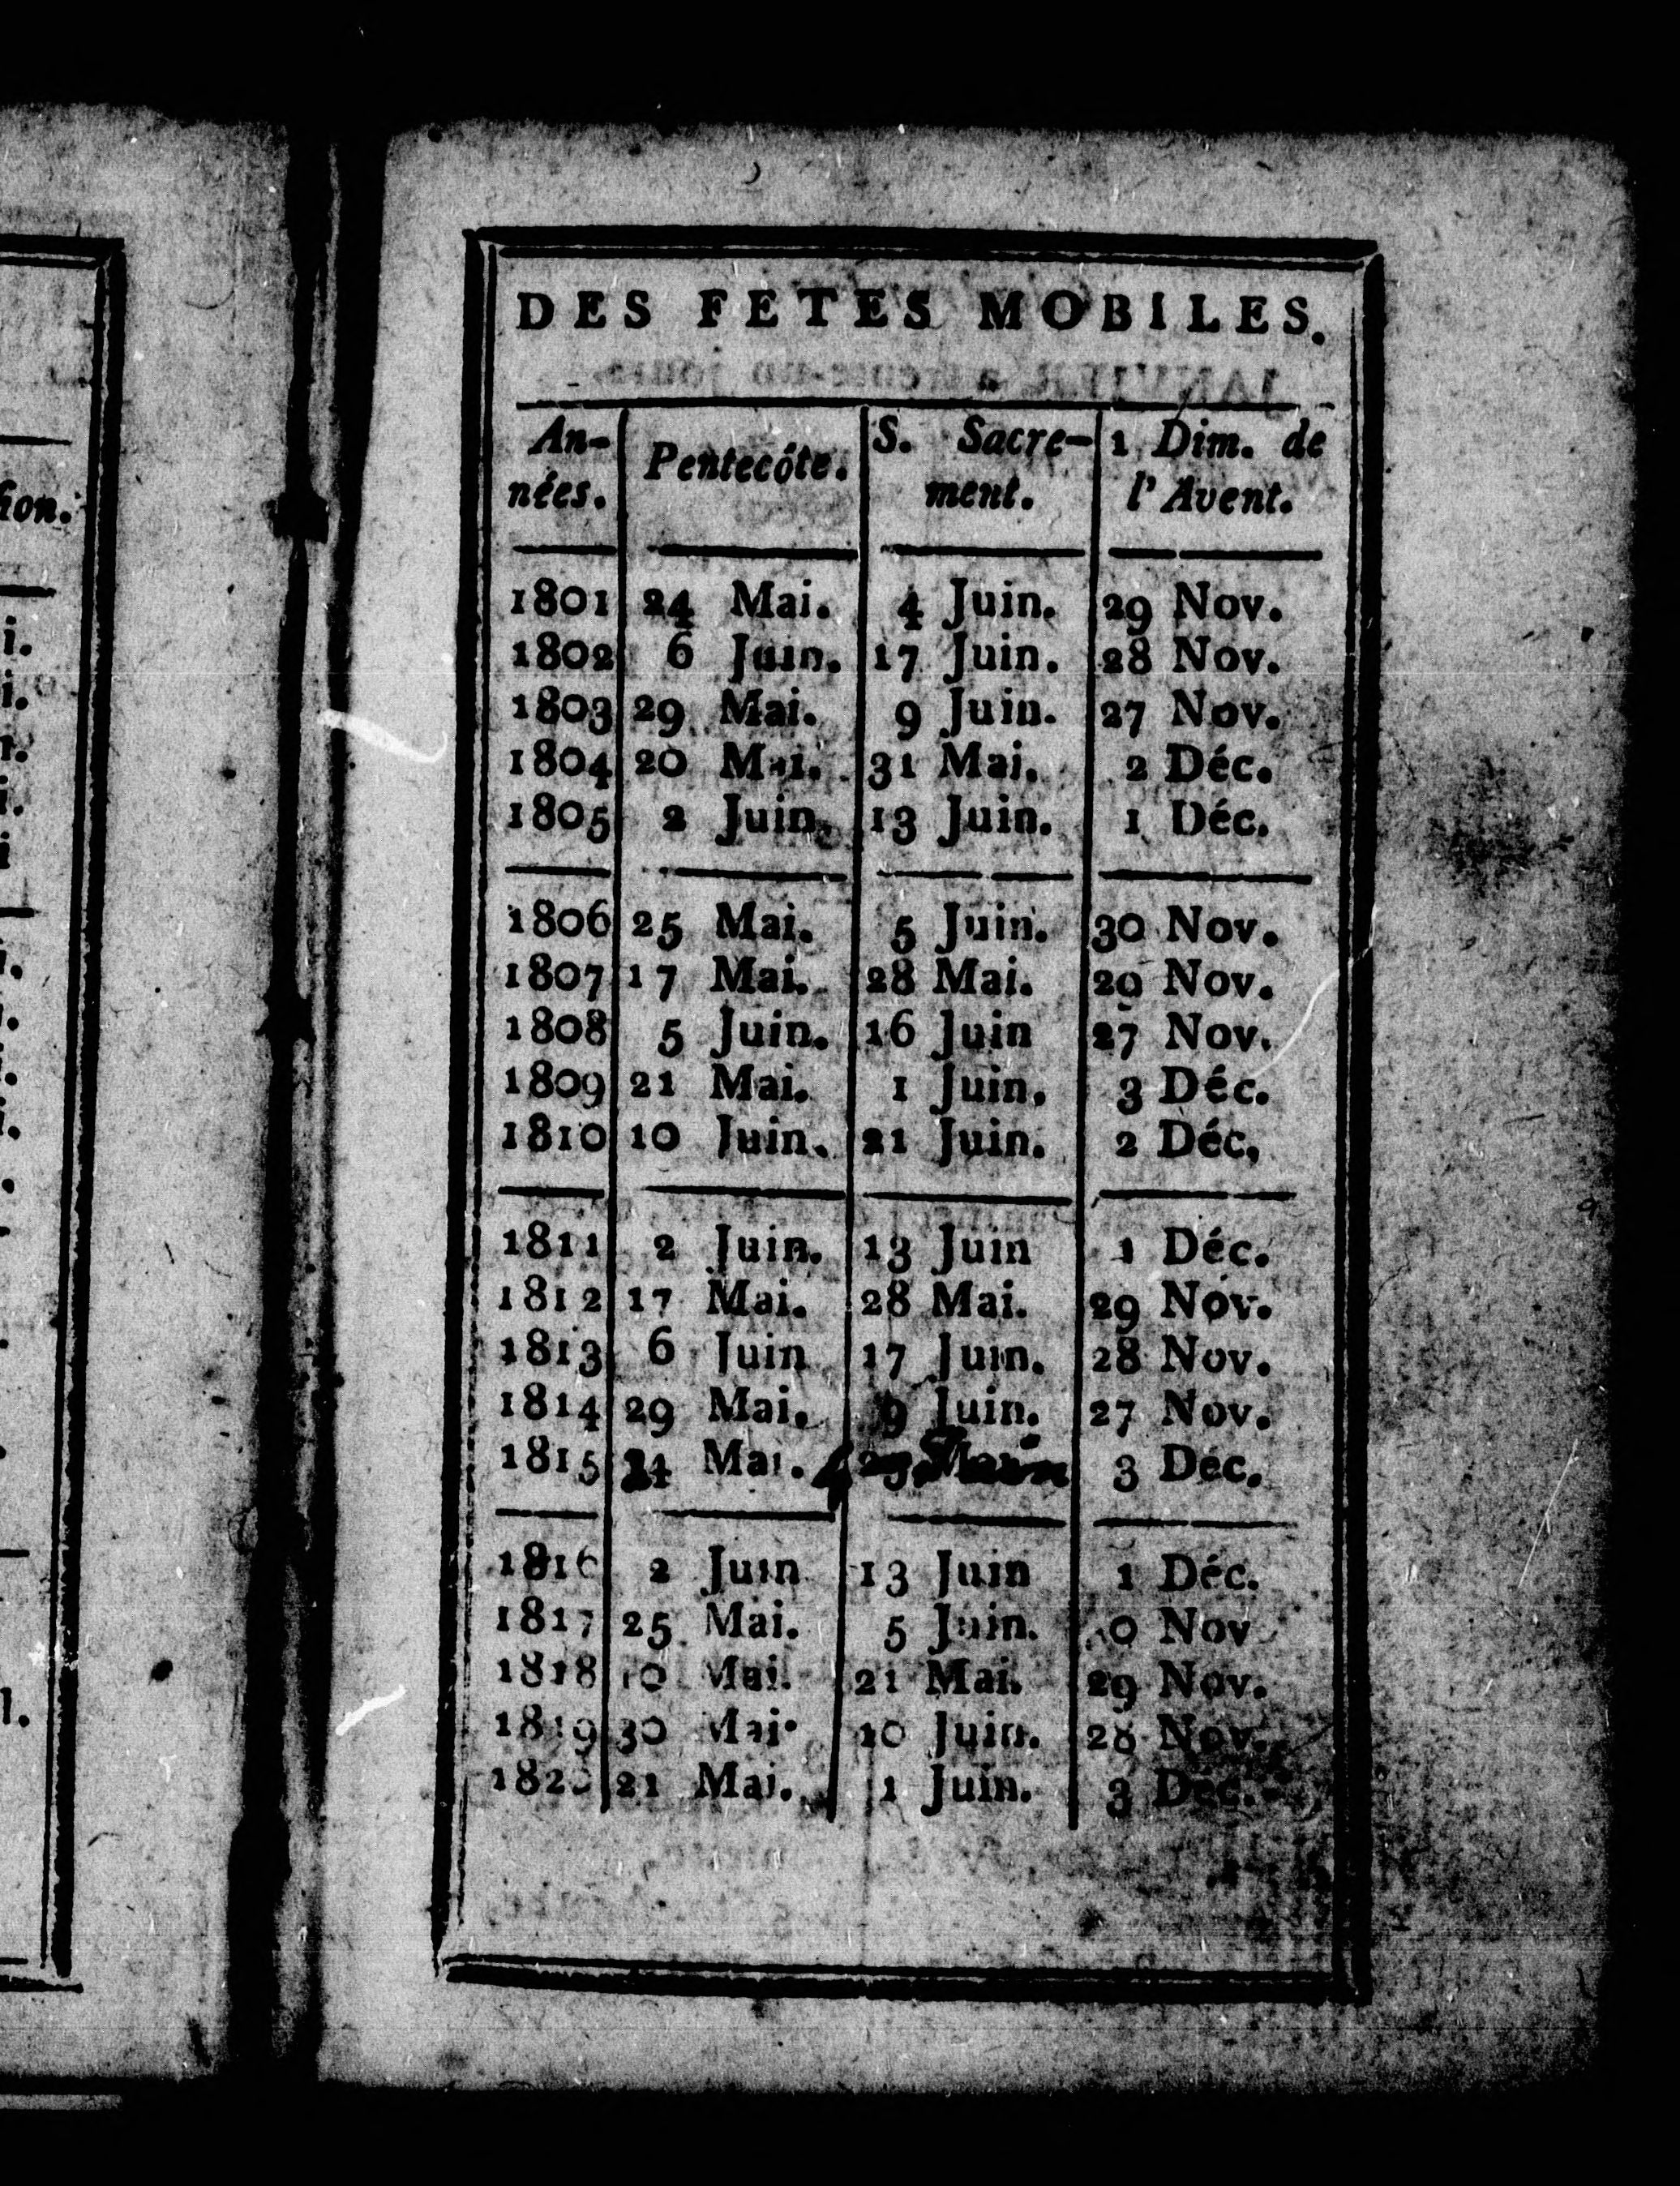 DES FETES MOBILES.
An-
nées. Pentecôte. S. Sacre-
ment. 1 Dim. de
l'Avent.
1801 24 Mai. 4 Juin. 29 Nov.
1802 6 Juin. 17 Juin. 28 Nov.
1803 29 Mai. 9 Juin. 27 Nov.
1804 20 Mai. 31 Mai. 2 Déc.
1805 2 Juin. 13 Juin. 1 Déc.
1806 25 Mai. 5 Juin. 30 Nov.
1807 17 Mai. 28 Mai. 29 Nov.
1808 5 Juin. 16 Juin 27 Nov.
1809 21 Mai. 1 Juin. 3 Déc.
1810 10 Juin. 21 Juin. 2 Déc,
1811 2 Juin. 13 Juin 1 Déc.
1812 17 Mai. 28 Mai. 29 Nov.
1813 6 Juin 17 Juin. 28 Nov.
1814 29 Mai. 9 Juin. 27 Nov.
1815 Mai. 3 Dec.
1816 2 Juin 13 Juin 1 Déc.
1817 25 Mai. 5 Juin. 0 Nov
1818 10 Mai. 21 Mai. 29 Nov.
1819 30 Mai. 10 Juin. 28 Nov.
1820 21 Mai. 1 Juin. 3 Déc.